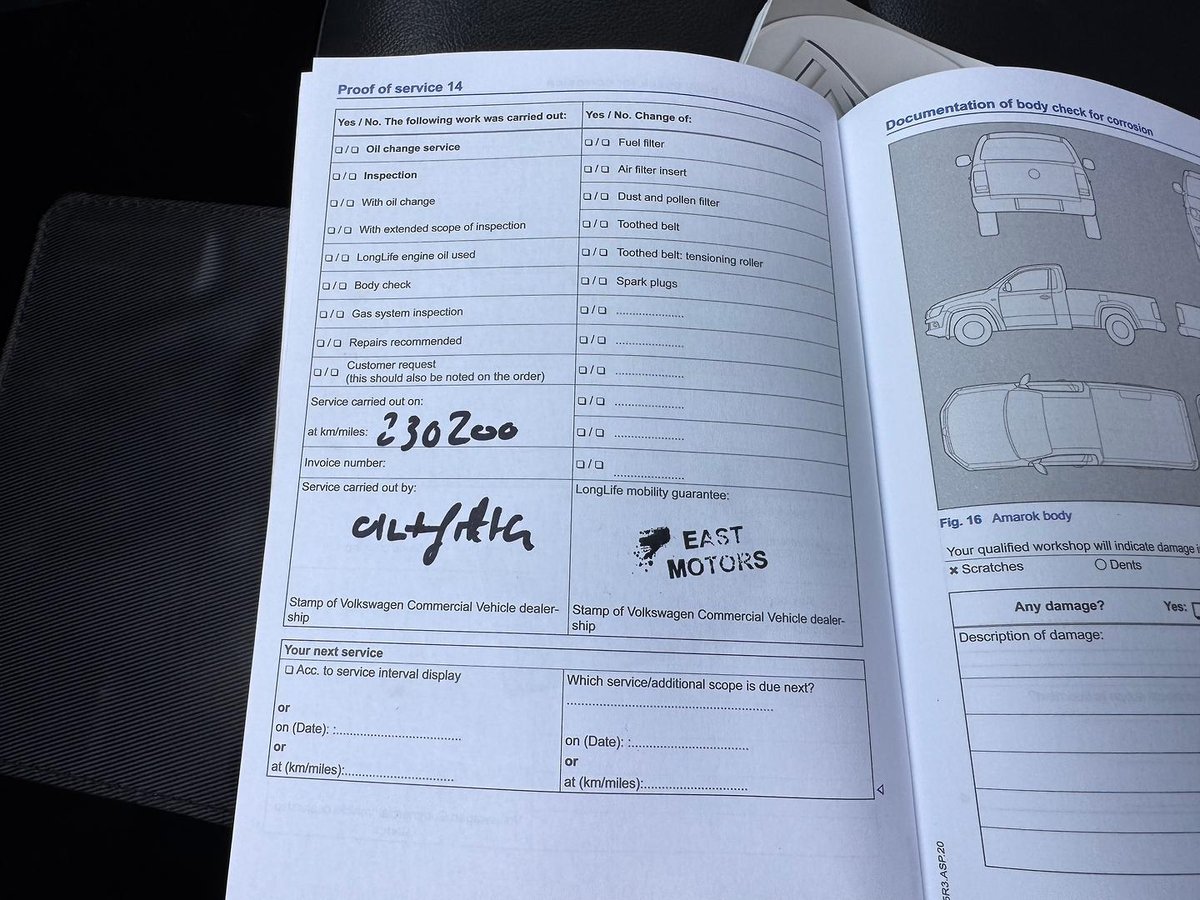 Proof of service 14
Yes / No. The following work was carried out:
❏ / ❏ Oil change service
❏ / ❏ Inspection
❏ / ❏ With oil change
❏ / ❏ With extended scope of inspection
❏ / ❏ LongLife engine oil used
❏ / ❏ Body check
❏ / ❏ Gas system inspection
❏ / ❏ Repairs recommended
❏ / ❏ Customer request
(this should also be noted on the order)
Service carried out on:
at km/miles: 230200
Invoice number:
Service carried out by:
Stamp of Volkswagen Commercial Vehicle dealer-
ship
Yes / No. Change of:
❏ / ❏ Fuel filter
❏ / ❏ Air filter insert
❏ / ❏ Dust and pollen filter
❏ / ❏ Toothed belt
❏ / ❏ Toothed belt: tensioning roller
❏ / ❏ Spark plugs
❏ / ❏ ......................
❏ / ❏ ......................
❏ / ❏ ......................
❏ / ❏ ......................
❏ / ❏ ......................
❏ / ❏ ......................
LongLife mobility guarantee:
EAST
MOTORS
Stamp of Volkswagen Commercial Vehicle dealer-
ship
Your next service
❏ Acc. to service interval display
or
on (Date): :......................................
or
at (km/miles):..................................
Which service/additional scope is due next?
................................................................
on (Date): :....................................
or
at (km/miles):................................
Documentation of body check for corrosion
Fig. 16 Amarok body
Your qualified workshop will indicate damage
✖ Scratches
○ Dents
Any damage?
Yes: ❏
Description of damage:
5R3.ASP.20